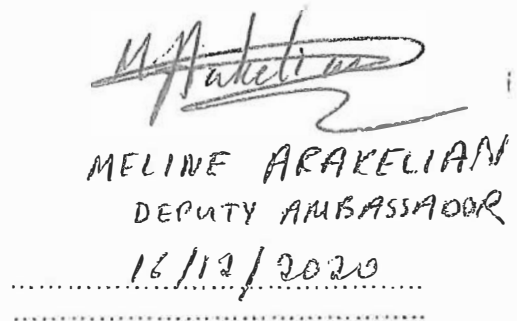 M. Arakelian
MELINE ARAKELIAN
DEPUTY AMBASSADOR
16/12/2020